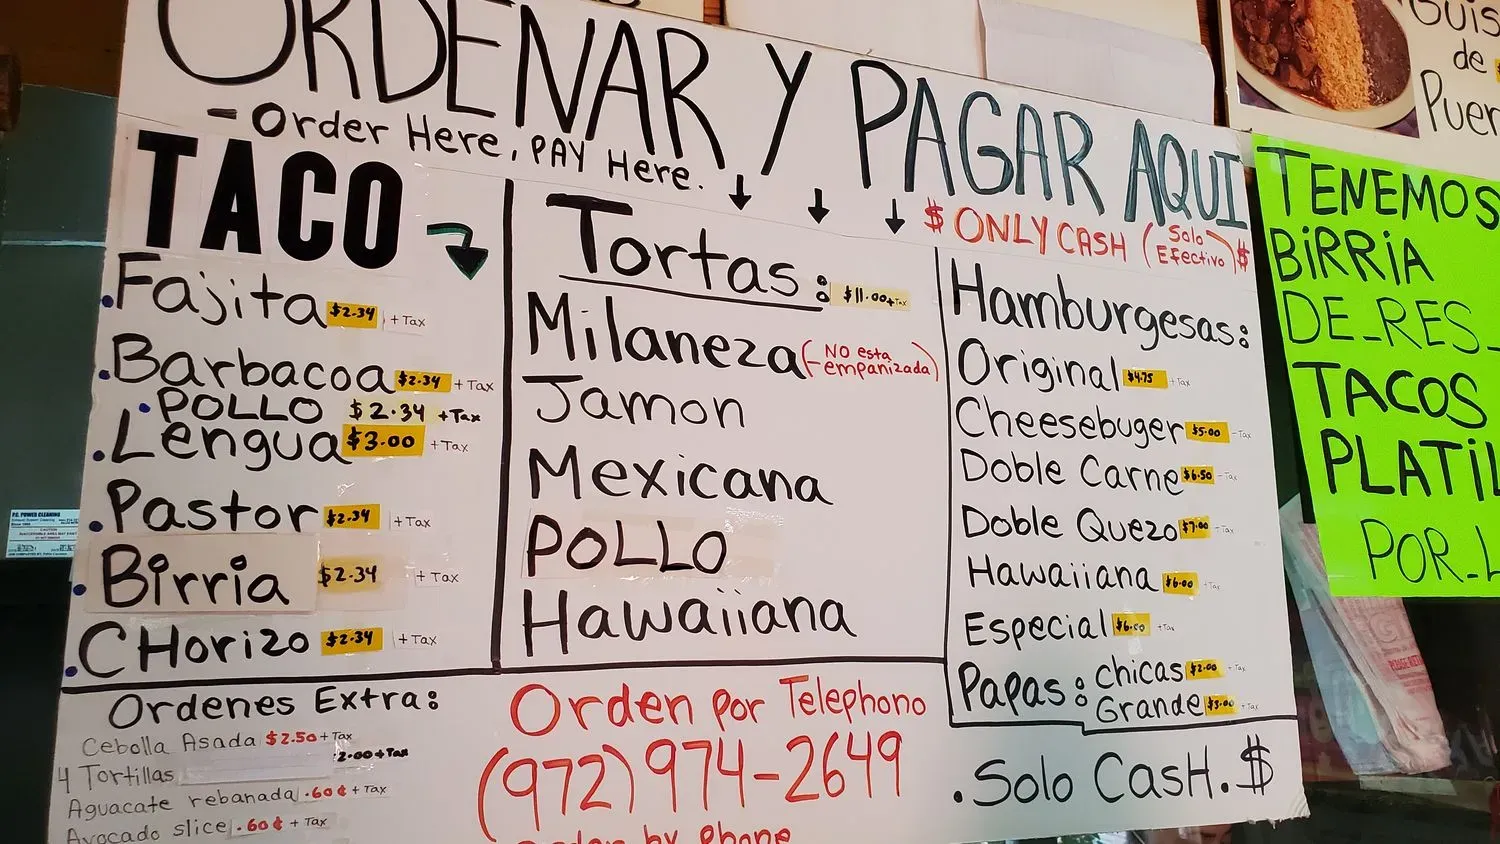 ORDENAR Y PAGAR AQUI
- Order Here, PAY Here.
$ ONLY CASH (Solo Efectivo) $
TACO
.Fajita $2.34 + Tax
.Barbacoa $2.34 + Tax
.POLLO $2.34 + Tax
.Lengua $3.00 + Tax
.Pastor $2.34 + Tax
.Birria $2.34 + Tax
.CHorizo $2.34 + Tax
Ordenes Extra:
Cebolla Asada $2.50 + Tax
4 Tortillas 2.00 + Tax
Aguacate rebanada .60¢ + Tax
Avocado slice .60¢ + Tax
Tortas: $11.00 + Tax
Milaneza (NO esta empanizada)
Jamon
Mexicana
POLLO
Hawaiiana
Orden por Telephono
(972) 974-2649
Orden by Phone
Hamburgesas:
Original $4.75 + Tax
Cheesebuger $5.00 - Tax
Doble Carne $6.50 - Tax
Doble Quezo $7.00 - Tax
Hawaiiana $6.00 + Tax
Especial $6.00 + Tax
Papas: chicas $2.00 + Tax
Grande $3.00 + Tax
.Solo CasH. $
Guis
de
Puer
TENEMOS
BiRRiA
DE_RES_
TACOS
PLATiL
POR_L
P.C. POWER CLEANING